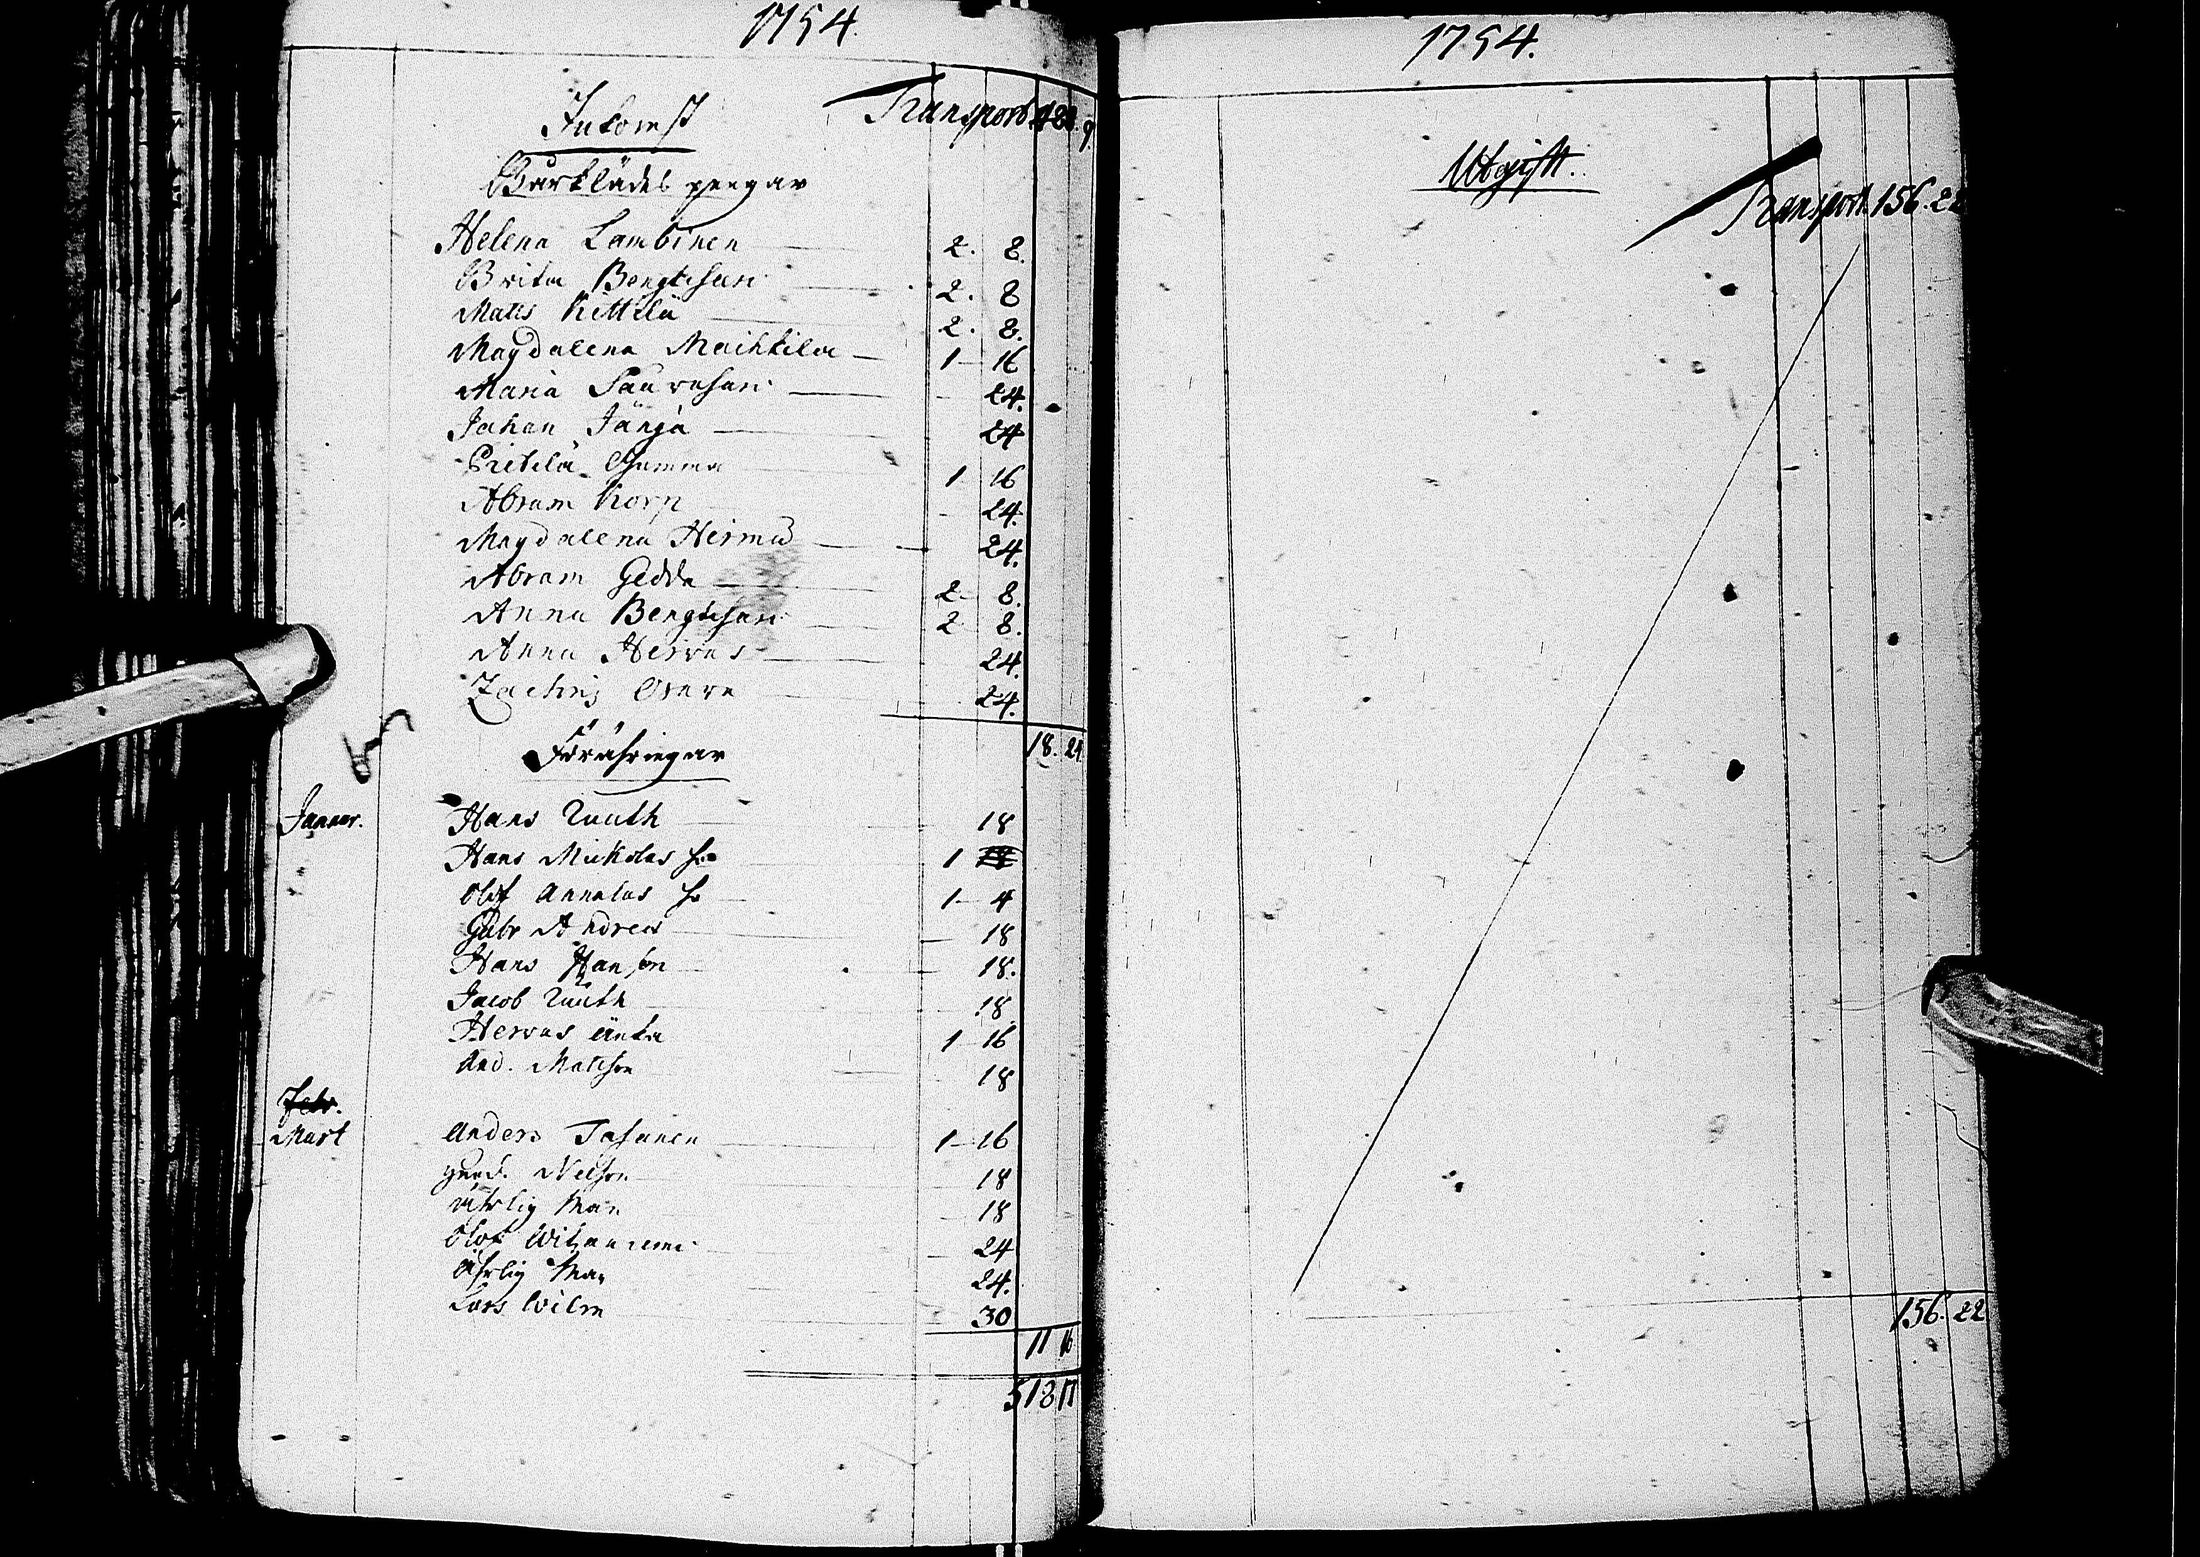 1754.
Transport 488. 9
Inkomst
Barklädes pengar
Helena Lambinen 2. 8.
Brita Bengtssari 2. 8
Matts Kittilä 2. 8.
Magdalena Maihkila 1 16
Maria Saurusari 24.
Johan Jänjä 24
Prittilä Gamma 1 16
Abram Korp 24.
Magdalena Herma 24.
Abram Gedda 2. 8.
Anna Bengtssari 2 8.
Anna Hervas 24.
Zachris 24.
18. 24
Föräringar
Januar. Hans Ruuth 18
Hans Mickolas so 1
Olof Annalas so 1 4
Gabr Andreas 18
Hans Hanson 18.
Jacob Ruuth 18.
Hervas änka 1 16
And. Matsson 18
Febr.
Mart Anders Tasanen 1 16
Nilsson 18
ährlig Man 18
Olof 24
Ährlig Man 24.
Lars Wilm 30
11 16
518 17
1754.
Utgift.
Transport. 156. 22
156. 22